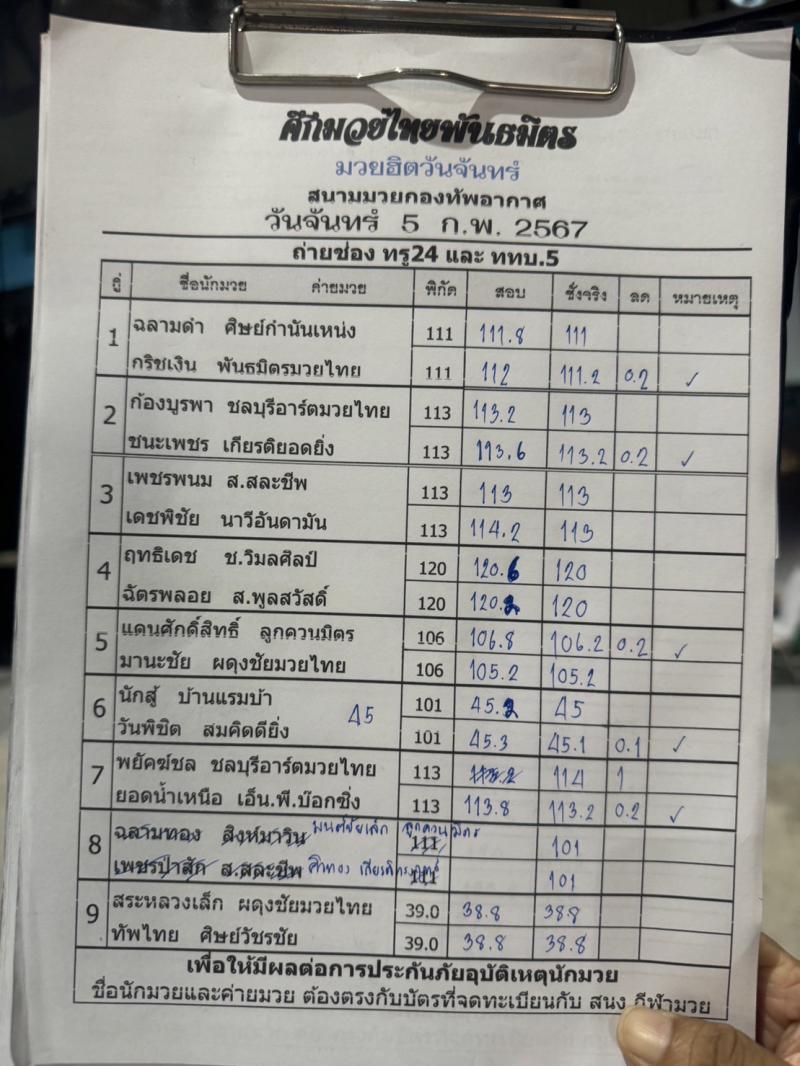 ศึกมวยไทยพันธมิตร
มวยฮิตวันจันทร์
สนามมวยกองทัพอากาศ
วันจันทร์ 5 ก.พ. 2567
ถ่ายช่อง ทรู24 และ ททบ.5
คู่ ชื่อนักมวย ค่ายมวย พิกัด สอบ ชั่งจริง ลด หมายเหตุ
1 ฉลามดำ ศิษย์กำนันเหน่ง 111 111.8 111
กริชเงิน พันธมิตรมวยไทย 111 112 111.2 0.2 ✓
2 ก้องบูรพา ชลบุรีอาร์ตมวยไทย 113 113.2 113
ชนะเพชร เกียรติยอดยิ่ง 113 113.6 113.2 0.2 ✓
3 เพชรพนม ส.สละชีพ 113 113 113
เดชพิชัย นาวีอันดามัน 113 114.2 113
4 ฤทธิเดช ช.วิมลศิลป์ 120 120.6 120
ฉัตรพลอย ส.พูลสวัสดิ์ 120 120.2 120
5 แดนศักดิ์สิทธิ์ ลูกควนมิตร 106 106.8 106.2 0.2 ✓
มานะชัย ผดุงชัยมวยไทย 106 105.2 105.2
6 นักสู้ บ้านแรมบ้า 45 101 45.2 45
วันพิชิต สมคิดดียิ่ง 101 45.3 45.1 0.1 ✓
7 พยัคฆ์ชล ชลบุรีอาร์ตมวยไทย 113 114 1
ยอดน้ำเหนือ เอ็น.พี.บ๊อกซิ่ง 113 113.8 113.2 0.2 ✓
8 ฉลามทอง สิงห์มาวิน มนต์ชัยเล็ก ลูกควนมิตร 111 101
เพชรป่าสัก ส.สละชีพ 111 101
9 สระหลวงเล็ก ผดุงชัยมวยไทย 39.0 38.8 38.8
ทัพไทย ศิษย์วัชรชัย 39.0 38.8 38.8
เพื่อให้มีผลต่อการประกันภัยอุบัติเหตุนักมวย
ชื่อนักมวยและค่ายมวย ต้องตรงกับบัตรที่จดทะเบียนกับ สนง กีฬามวย